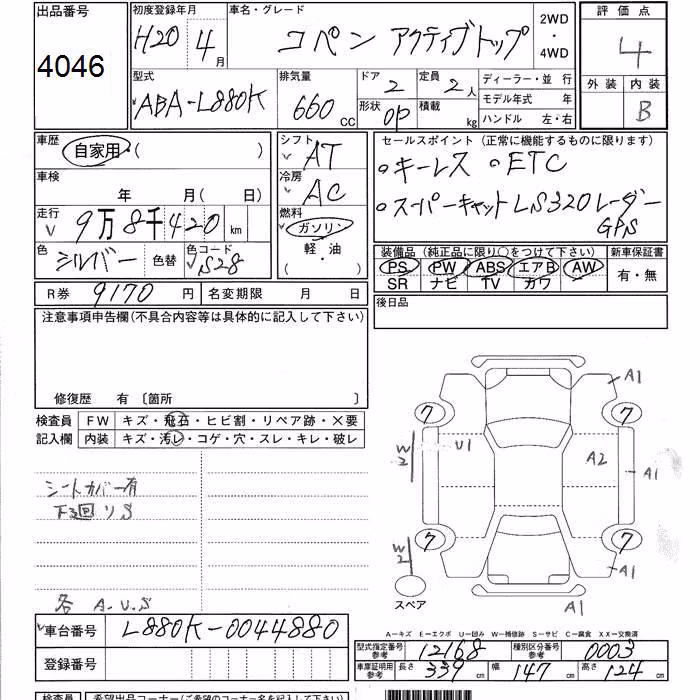 出品番号
4046
初度登録年月
H20 4月
車名・グレード
コペン アクティブトップ
2WD
・
4WD
評価点
4
外装 内装
B
型式
ABA-L880K
排気量
660 CC
ドア 2
形状 OP
定員 2人
積載 kg
ディーラー・並行
モデル年式 年
ハンドル 左・右
車歴
自家用・( )
車検
年 月( 日)
走行
9万8千420 km
色 シルバー 色替
色コード
S28
シフト
AT
冷房
AC
燃料
ガソリン
軽・油
( ・ )
セールスポイント（正常に機能するものに限ります）
○キーレス ○ETC
○スーパーキャットLS320レーダー
GPS
装備品（純正品に限り○をつけて下さい）
PS PW ABS エアB AW
SR ナビ TV カワ
新車保証書
有・無
後日品
R券 9170 円
名変期限 月 日
注意事項申告欄(不具合内容等は具体的に記入して下さい)
修復歴 有〔箇所 〕
検査員
記入欄
FW キズ・飛石・ヒビ割・リペア跡・X要
内装 キズ・汚レ・コゲ・穴・スレ・キレ・破レ
シートカバー有
下回りS
各 A.U.S
A1
7 7
W2
U1
A2
A1
A1
7 7
W2
A1
A1
スペア
車台番号 L880K-0044880
登録番号
A－キズ E－エクボ U－凹み W－補修跡 S－サビ C－腐食 XX－交換済
型式指定番号
参考
12168
種別区分番号
参考
0003
車庫証明用
参考
長さ 339 cm
幅 147 cm
高さ 124 cm
検査員
希望出品コーナー(ご希望のコーナー名を記入下さい)